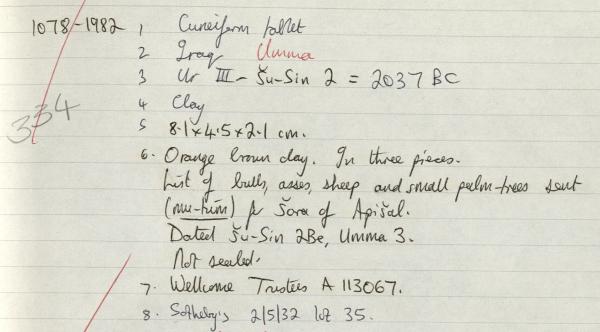 1078-1982 1 Cuneiform tablet
2 Iraq Umma
3 Ur III - Šu-Sin 2 = 2037 BC
334
4 Clay
5 8.1 x 4.5 x 2.1 cm.
6. Orange brown clay. In three pieces.
List of bulls, asses, sheep and small palm-trees sent
(mu-túm) for Šara of Apišal.
Dated Šu-Sin 2Be, Umma 3.
Not sealed.
7. Wellcome Trustees A 113067.
8. Sotheby's 2/5/32 lot 35.